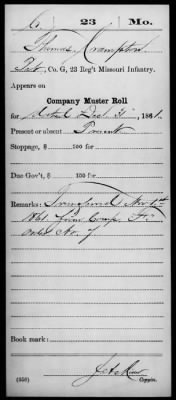 C 23 Mo.
Thomas Crampton
Pvt, Co. G, 23 Reg't Missouri Infantry.
Appears on
Company Muster Roll
for Oct Dec. 31, 1861.
Present or absent Present
Stoppage, $ 100 for
Due Gov't, $ 100 for
Remarks: Transferred Nov 1st
1861 from Comp. F.
order No. 7
Book mark:
(356) Copyist.